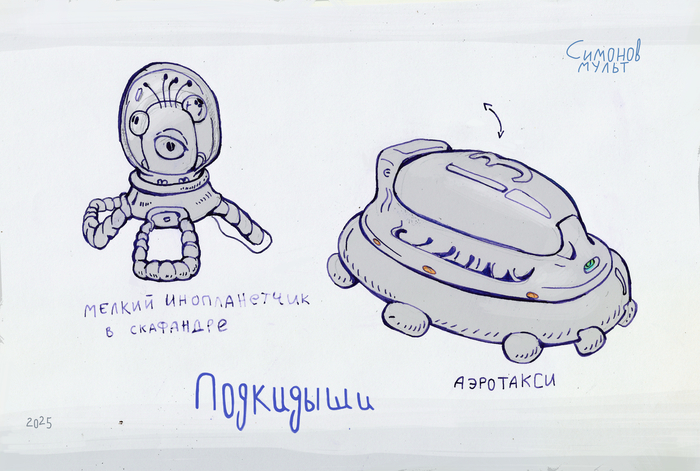 Симонов
мульт
мелкий инопланетчик
в скафандре
аэротакси
Подкидыши
2025